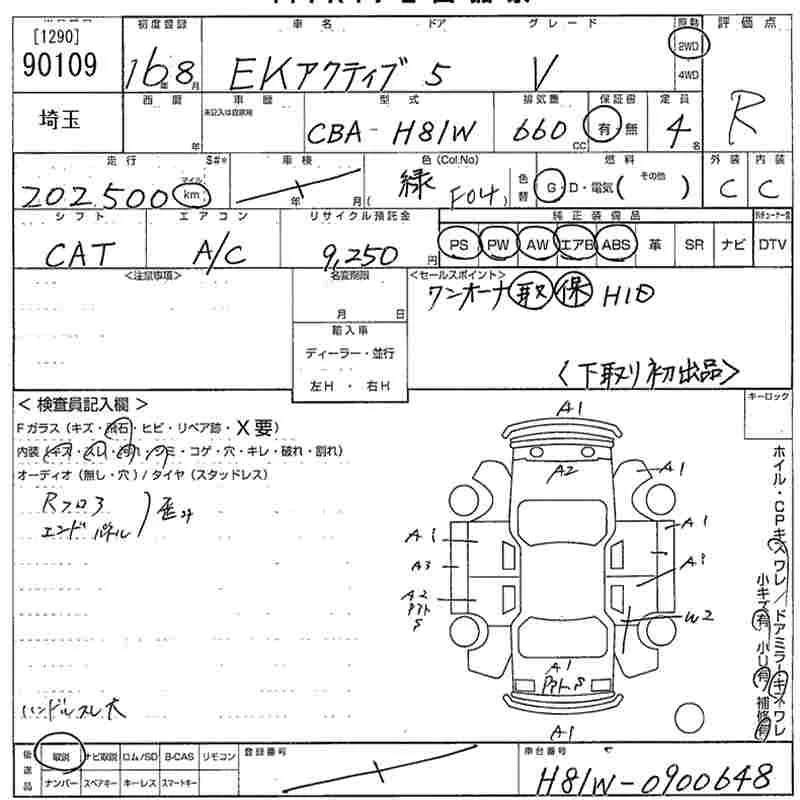 [1290]
90109
初度登録 車名 ドア グレード 原動 評価点
16年8月 EKアクティブ 5 V 2WD 4WD R
埼玉
西暦 年 車歴 型式 排気量 保証書 定員
未記入は自家用 CBA-H81W 660CC 有・無 4名
走行 S#* 車検 色(Col.No) 燃料 外装 内装
202,500 マイル km 年 月 ( 緑 F04 ) 色替 G・D・電気( その他 ) C C
シフト エアコン リサイクル預託金 純正装備品
CAT A/C 9,250円 PS PW AW エアB ABS 革 SR ナビ DTV
<注意事項> 名変期限 <セールスポイント>
月 日 ワンオーナ 取 保 HID
輸入車
ディーラー・並行
左H ・ 右H 〈下取り初出品〉
キーロック
< 検査員記入欄 >
Fガラス(キズ・飛石・ヒビ・リペア跡・X要)
内装(キズ・スレ・汚れ・シミ・コゲ・穴・キレ・破れ・割れ)
オーディオ(無し・穴)/タイヤ(スタッドレス)
Rフロ3
エンドパネル ) 歪み
ハンドルスレ大
A1
A2
A1
A1 A1
A3 A1
A2 W2
A1
A1
ホイル・CPキズワレ/ドアミラーキズワレ
小キズ有 小U有 補修有
後送品 取説 ナビ取説 ロム/SD B-CAS リモコン
ナンバー スペアキー キーレス スマートキー
登録番号 車台番号
H81W-0900648